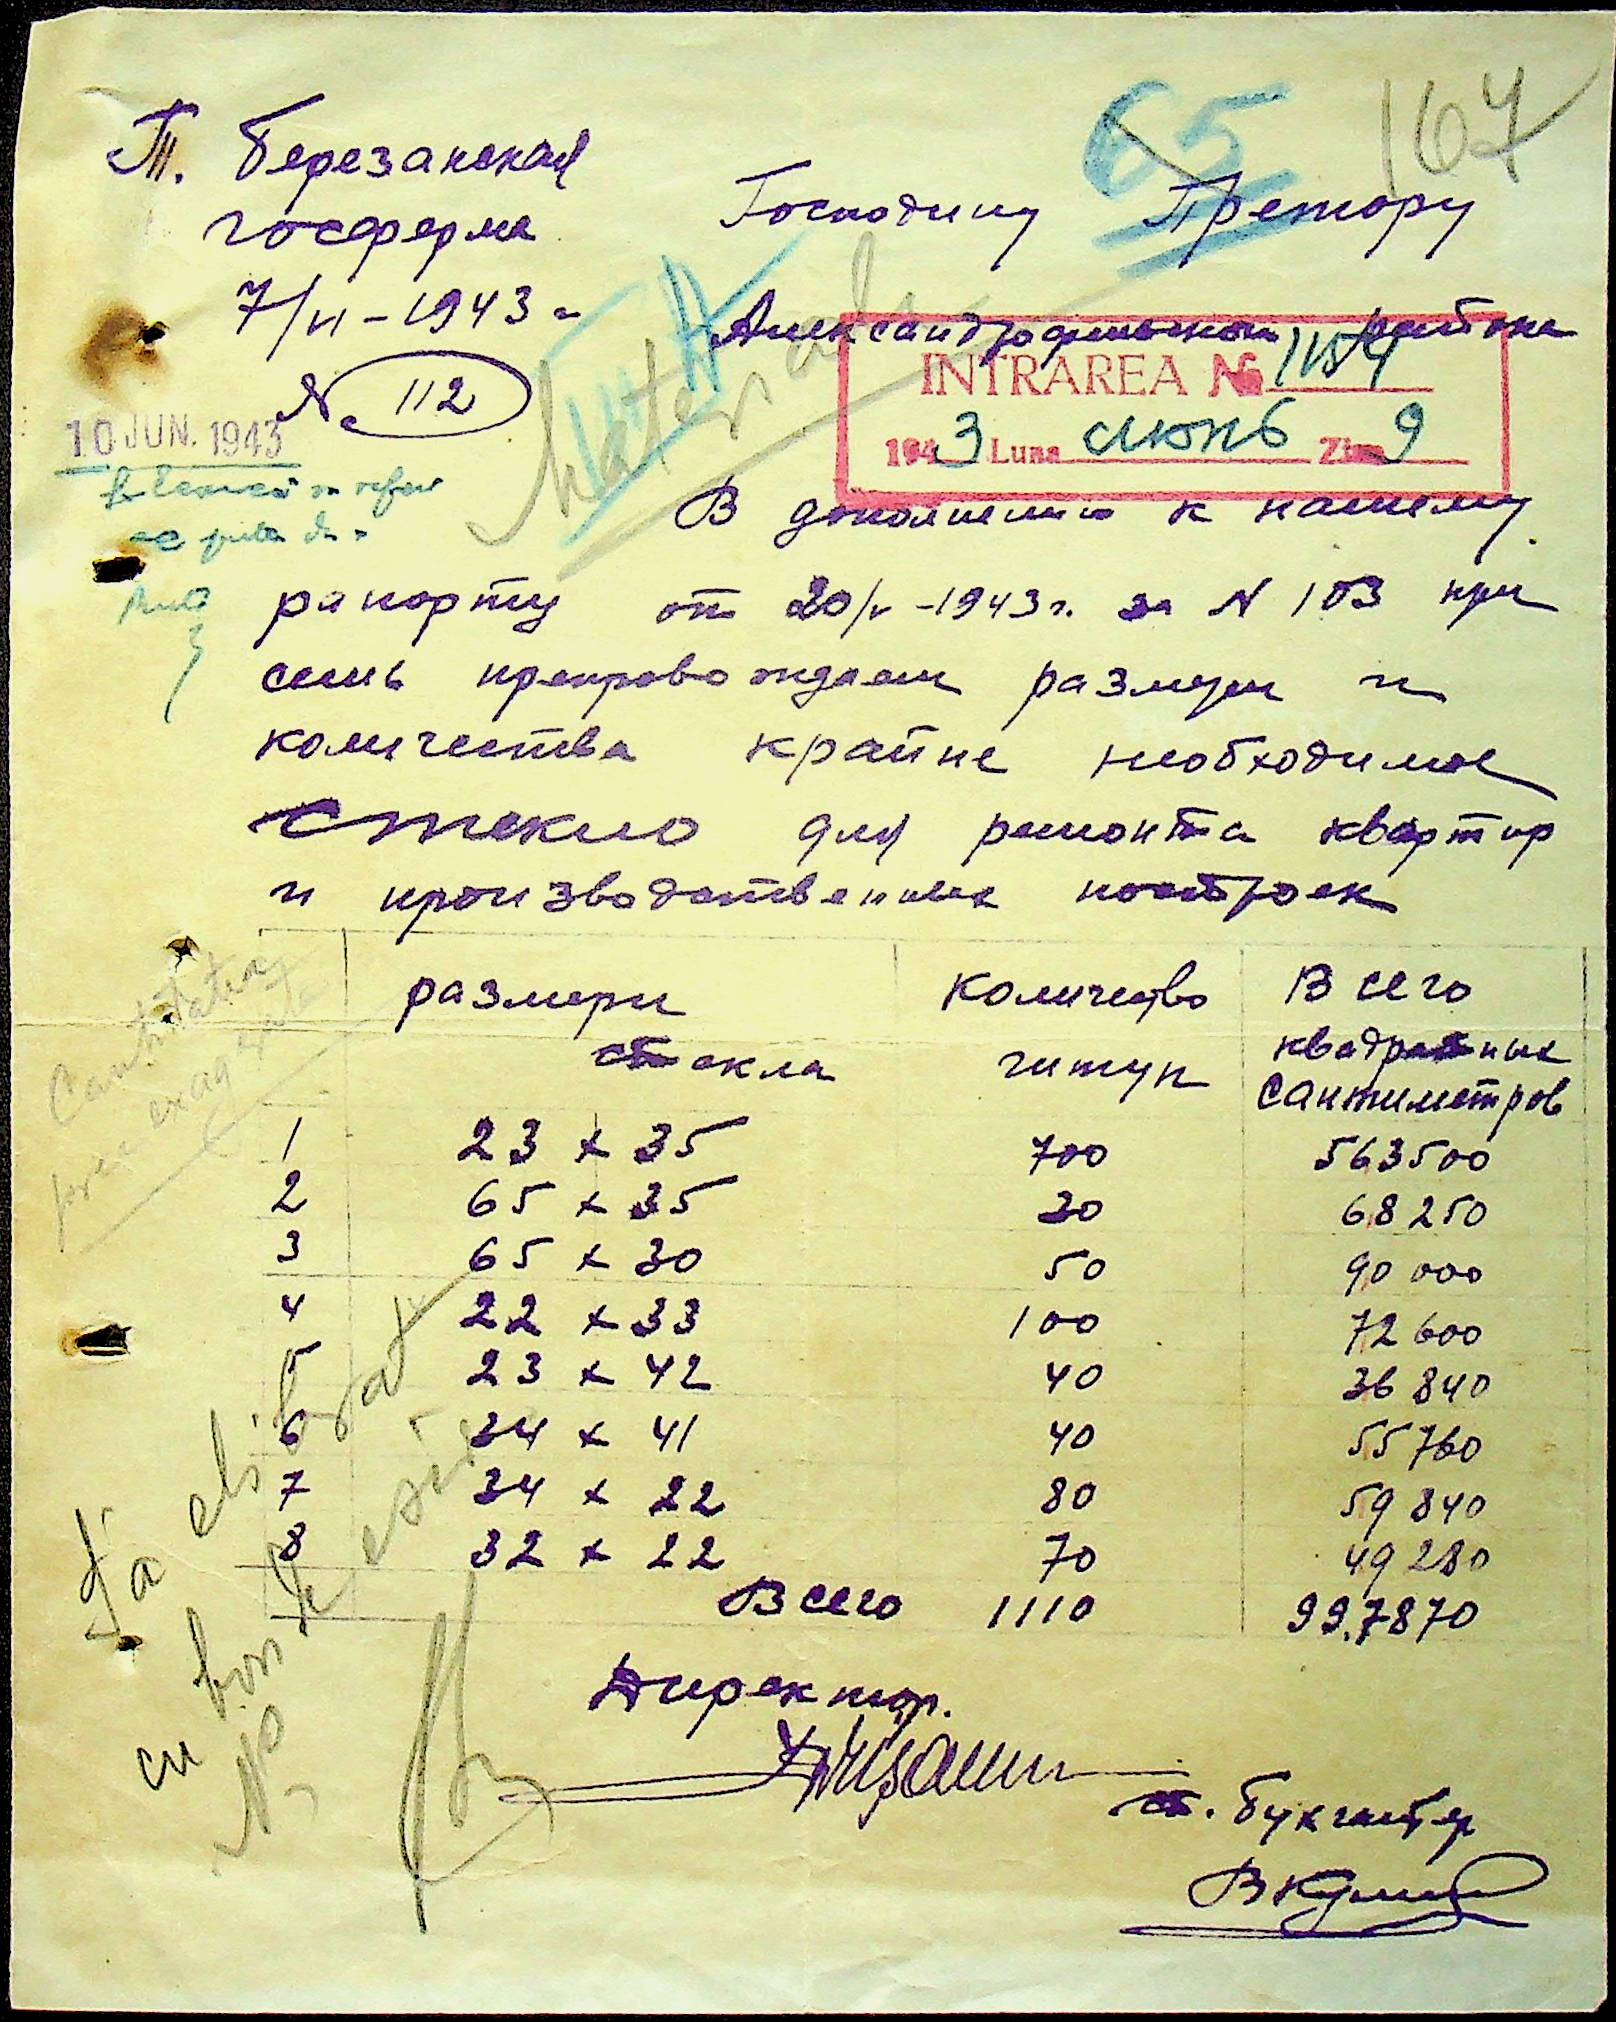 65 167
Т. Березанская
госферма
7/VI-1943 г
N. 112
Господину Претору
Александрфельского района
INTRAREA № 1154
1943 Luna июнь Ziua 9
10 JUN. 1943
Materiale
В дополнении к нашему
рапорту от 20/V-1943 г. за N 103 при
семь препровождаем размеры и
количества крайне необходимое
стекло для ремонта квартир
и производственных построек
размеры стекла количество штук Всего квадратных сантиметров
1 23 x 35 700 563500
2 65 x 35 30 68250
3 65 x 30 50 90 000
4 22 x 33 100 72600
5 23 x 42 40 36 840
6 34 x 41 40 55760
7 34 x 22 80 59 840
8 32 x 22 70 49 280
Всего 1110 99.7870
Cantitatea
prea exagerata
cu bon de
Директор.
ст. бухгалтер